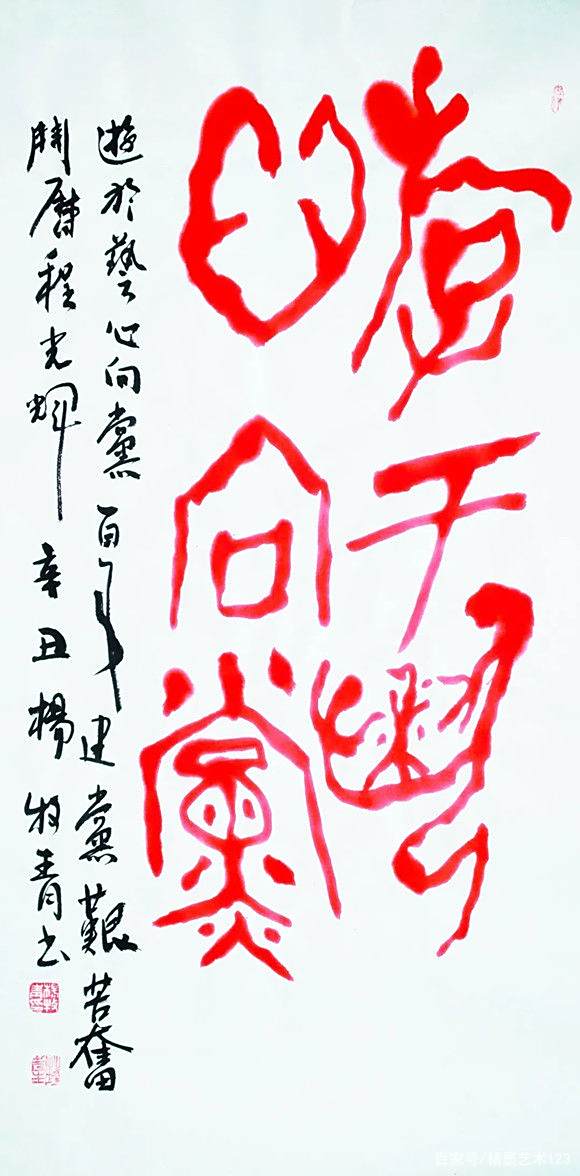 遊于藝
心向黨
遊於藝心向黨百年建黨艱苦奮
鬥曆程光輝 辛丑楊牧青书
百家号/艺术123